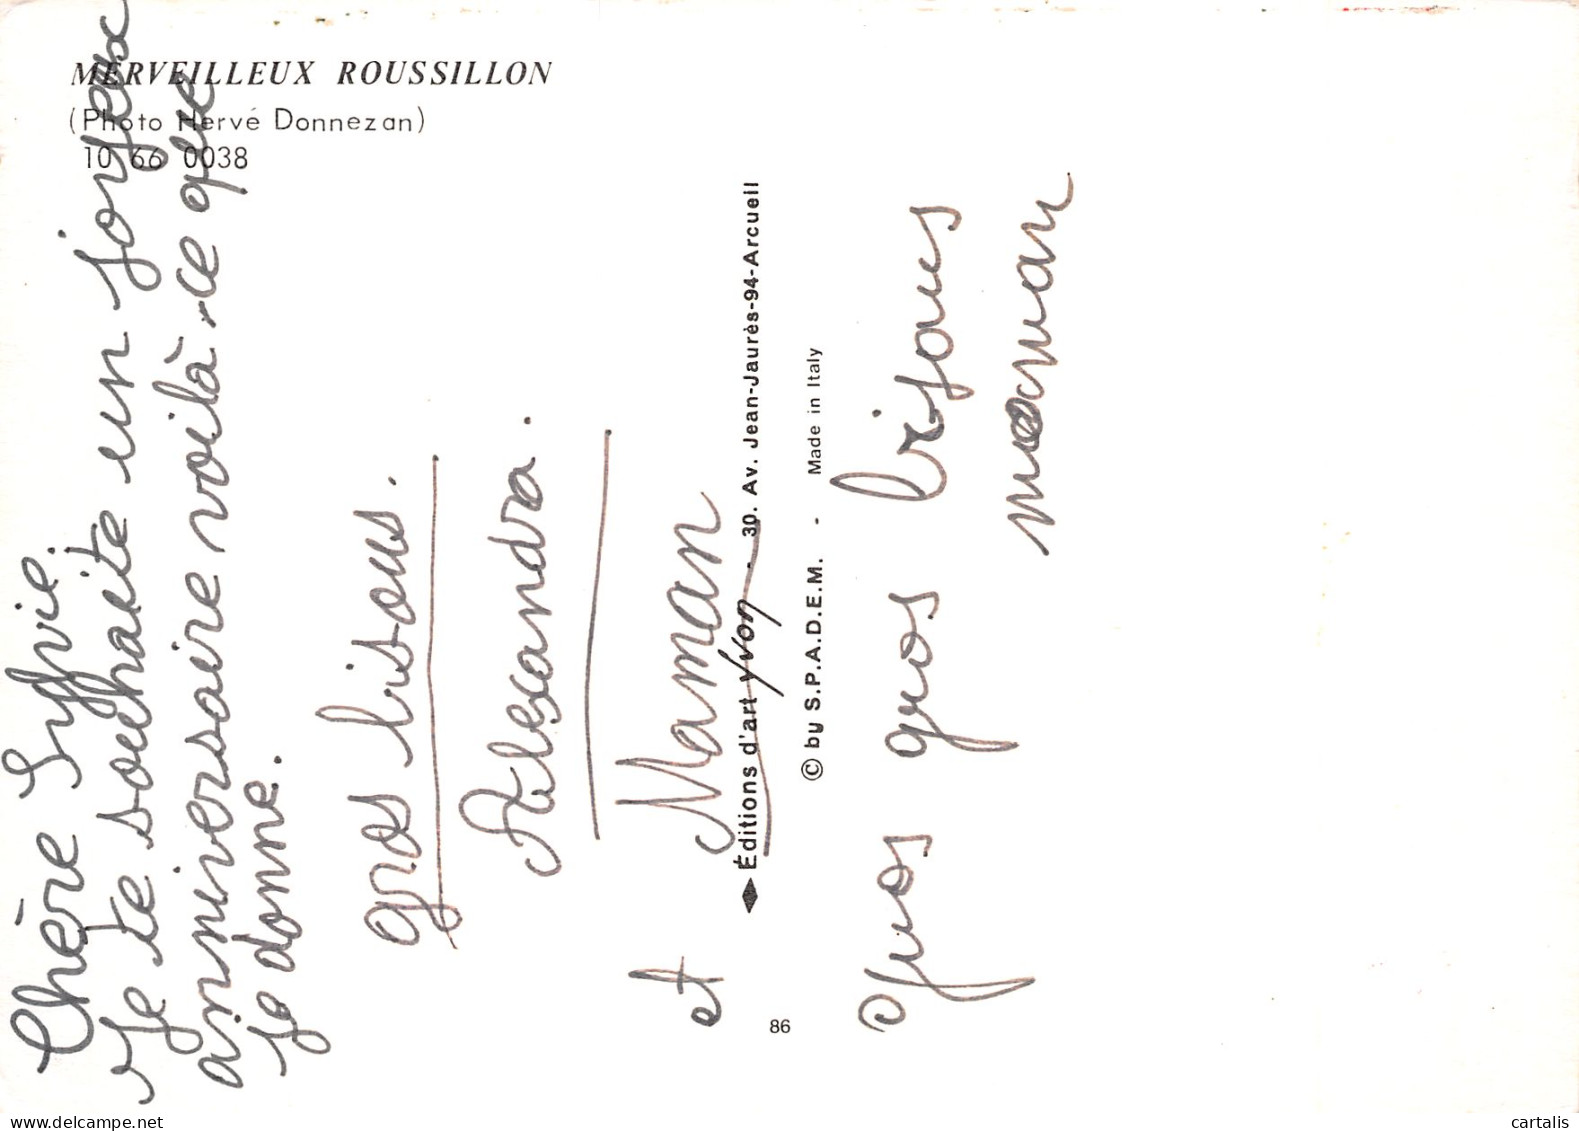 MERVEILLEUX ROUSSILLON
(Photo Hervé Donnezan)
10 66 0038
Chère Sylvie.
Je te souhaite un joyeux
anniversaire voilà ce que
je donne.
gros bisous.
Alexandra.
et Maman
Éditions d'art Yvon - 30. Av. Jean-Jaurès-94-Arcueil
© by S.P.A.D.E.M. - Made in Italy
86
Gros gros bisous
maman
cartalis
delcampe.net